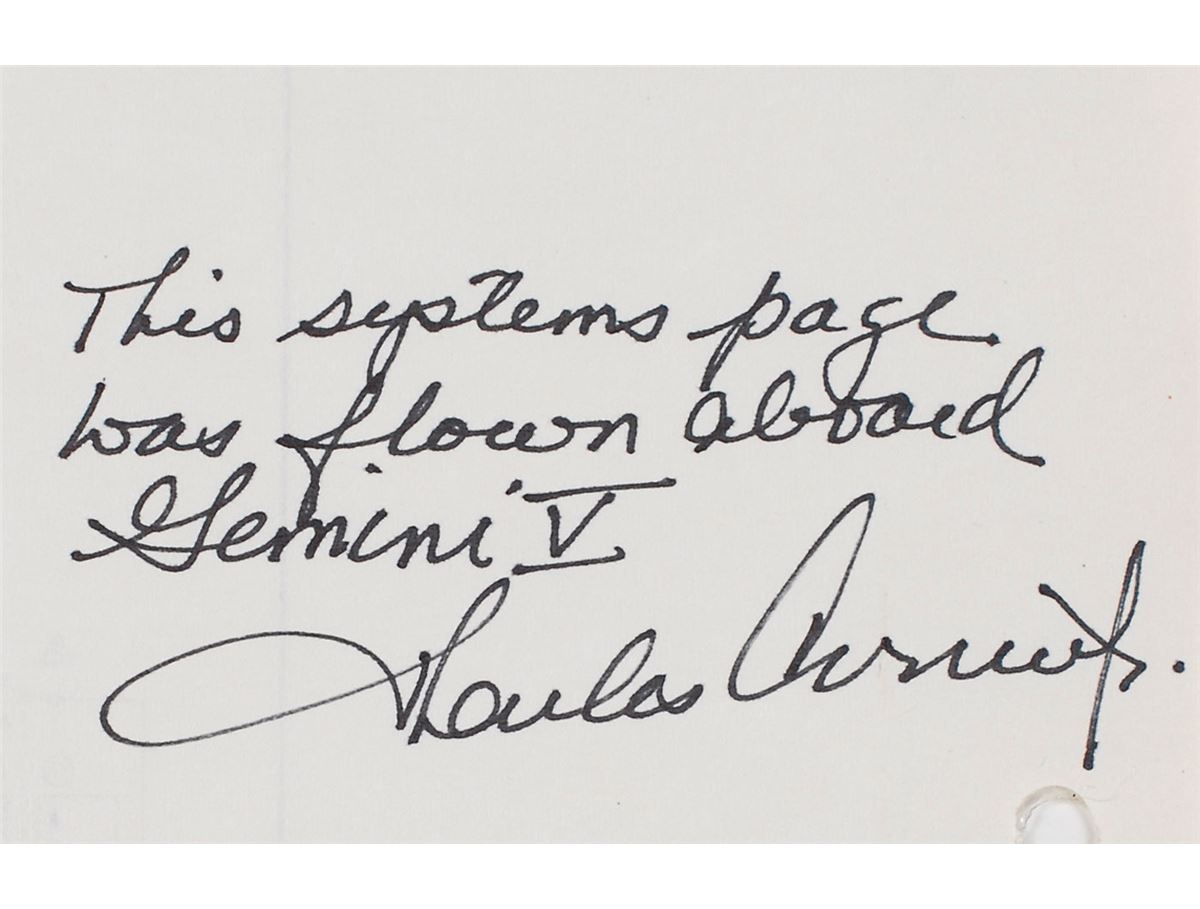 This systems page
was flown aboard
Gemini V
Charles Conrad Jr.